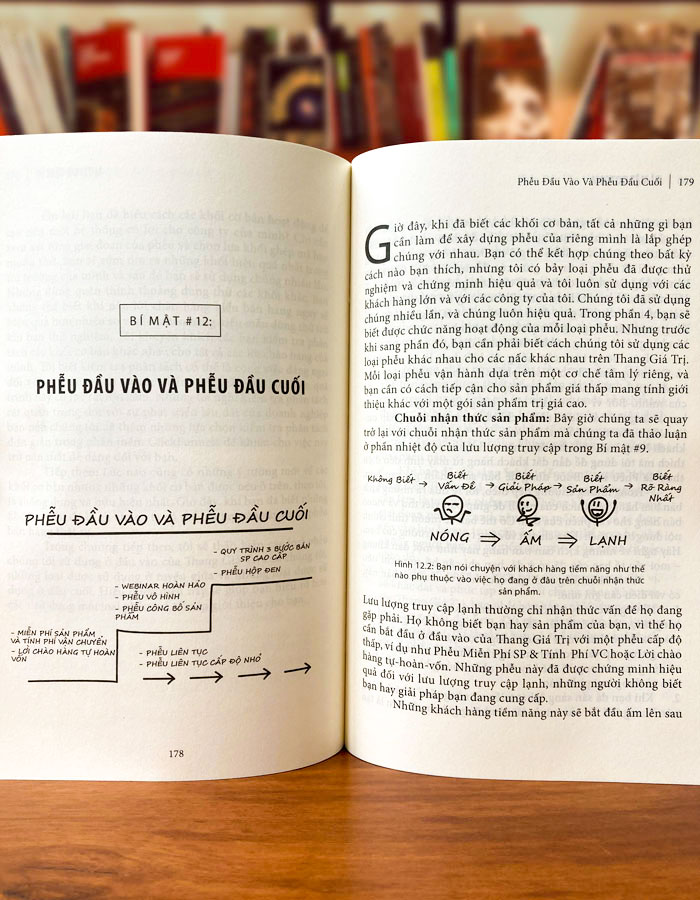 BÍ MẬT #12:
PHỄU ĐẦU VÀO VÀ PHỄU ĐẦU CUỐI
PHỄU ĐẦU VÀO VÀ PHỄU ĐẦU CUỐI
- QUY TRÌNH 3 BƯỚC BÁN
SP CAO CẤP
- PHỄU HỘP ĐEN
- WEBINAR HOÀN HẢO
- PHỄU VÔ HÌNH
- PHỄU CÔNG BỐ SẢN
PHẨM
- MIỄN PHÍ SẢN PHẨM
VÀ TÍNH PHÍ VẬN CHUYỂN
- LỜI CHÀO HÀNG TỰ HOÀN
VỐN
- PHỄU LIÊN TỤC
- PHỄU LIÊN TỤC CẤP ĐỘ NHỎ
178
Phễu Đầu Vào Và Phễu Đầu Cuối | 179
Giờ đây, khi đã biết các khối cơ bản, tất cả những gì bạn
cần làm để xây dựng phễu của riêng mình là lắp ghép
chúng với nhau. Bạn có thể kết hợp chúng theo bất kỳ
cách nào bạn thích, nhưng tôi có bảy loại phễu đã được thử
nghiệm và chứng minh hiệu quả và tôi luôn sử dụng với các
khách hàng lớn và với các công ty của tôi. Chúng tôi đã sử dụng
chúng nhiều lần, và chúng luôn hiệu quả. Trong phần 4, bạn sẽ
biết được chức năng hoạt động của mỗi loại phễu. Nhưng trước
khi sang phần đó, bạn cần phải biết cách chúng tôi sử dụng các
loại phễu khác nhau cho các nấc khác nhau trên Thang Giá Trị.
Mỗi loại phễu vận hành dựa trên một cơ chế tâm lý riêng, và
bạn cần có cách tiếp cận cho sản phẩm giá thấp mang tính giới
thiệu khác với một gói sản phẩm trị giá cao.
Chuỗi nhận thức sản phẩm: Bây giờ chúng ta sẽ quay
trở lại với chuỗi nhận thức sản phẩm mà chúng ta đã thảo luận
ở phần nhiệt độ của lưu lượng truy cập trong Bí mật #9.
Không Biết → Biết Vấn Đề → Biết Giải Pháp → Biết Sản Phẩm → Biết Rõ Ràng Nhất
NÓNG ⇒ ẤM ⇒ LẠNH
Hình 12.2: Bạn nói chuyện với khách hàng tiềm năng như thế
nào phụ thuộc vào việc họ đang ở đâu trên chuỗi nhận thức
sản phẩm.
Lưu lượng truy cập lạnh thường chỉ nhận thức vấn đề họ đang
gặp phải. Họ không biết bạn hay sản phẩm của bạn, vì thế họ
cần bắt đầu ở đầu vào của Thang Giá Trị với một phễu cấp độ
thấp, ví dụ như Phễu Miễn Phí SP & Tính Phí VC hoặc Lời chào
hàng tự-hoàn-vốn. Những phễu này đã được chứng minh hiệu
quả đối với lưu lượng truy cập lạnh, những người không biết
bạn hay giải pháp bạn đang cung cấp.
Những khách hàng tiềm năng này sẽ bắt đầu ấm lên sau